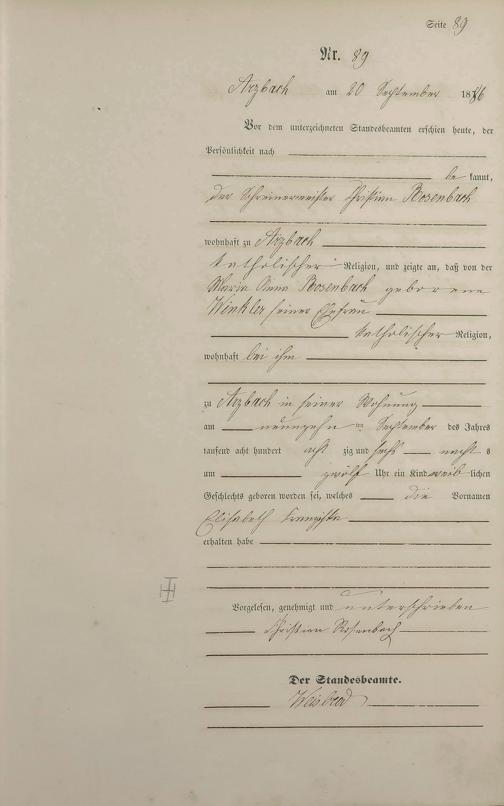 Seite 89
Nr. 89
Arzbach am 20 September 1886
Vor dem unterzeichneten Standesbeamten erschien heute, der
Persönlichkeit nach
be kannt,
der Schreinermeister Christian Rosenbach
wohnhaft zu Arzbach
katholischer Religion, und zeigte an, daß von der
Maria Anna Rosenbach geborene
Winkler seiner Ehefrau
katholischer Religion,
wohnhaft bei ihm
zu Arzbach in seiner Wohnung
am neunzehn ten September des Jahres
tausend acht hundert acht zig und sechs nachts
um zwölf Uhr ein Kind weiblichen
Geschlechts geboren worden sei, welches die Vornamen
Elisabeth Franziska
erhalten habe
Vorgelesen, genehmigt und unterschrieben
Christian Rosenbach
Der Standesbeamte.
Weisbrod